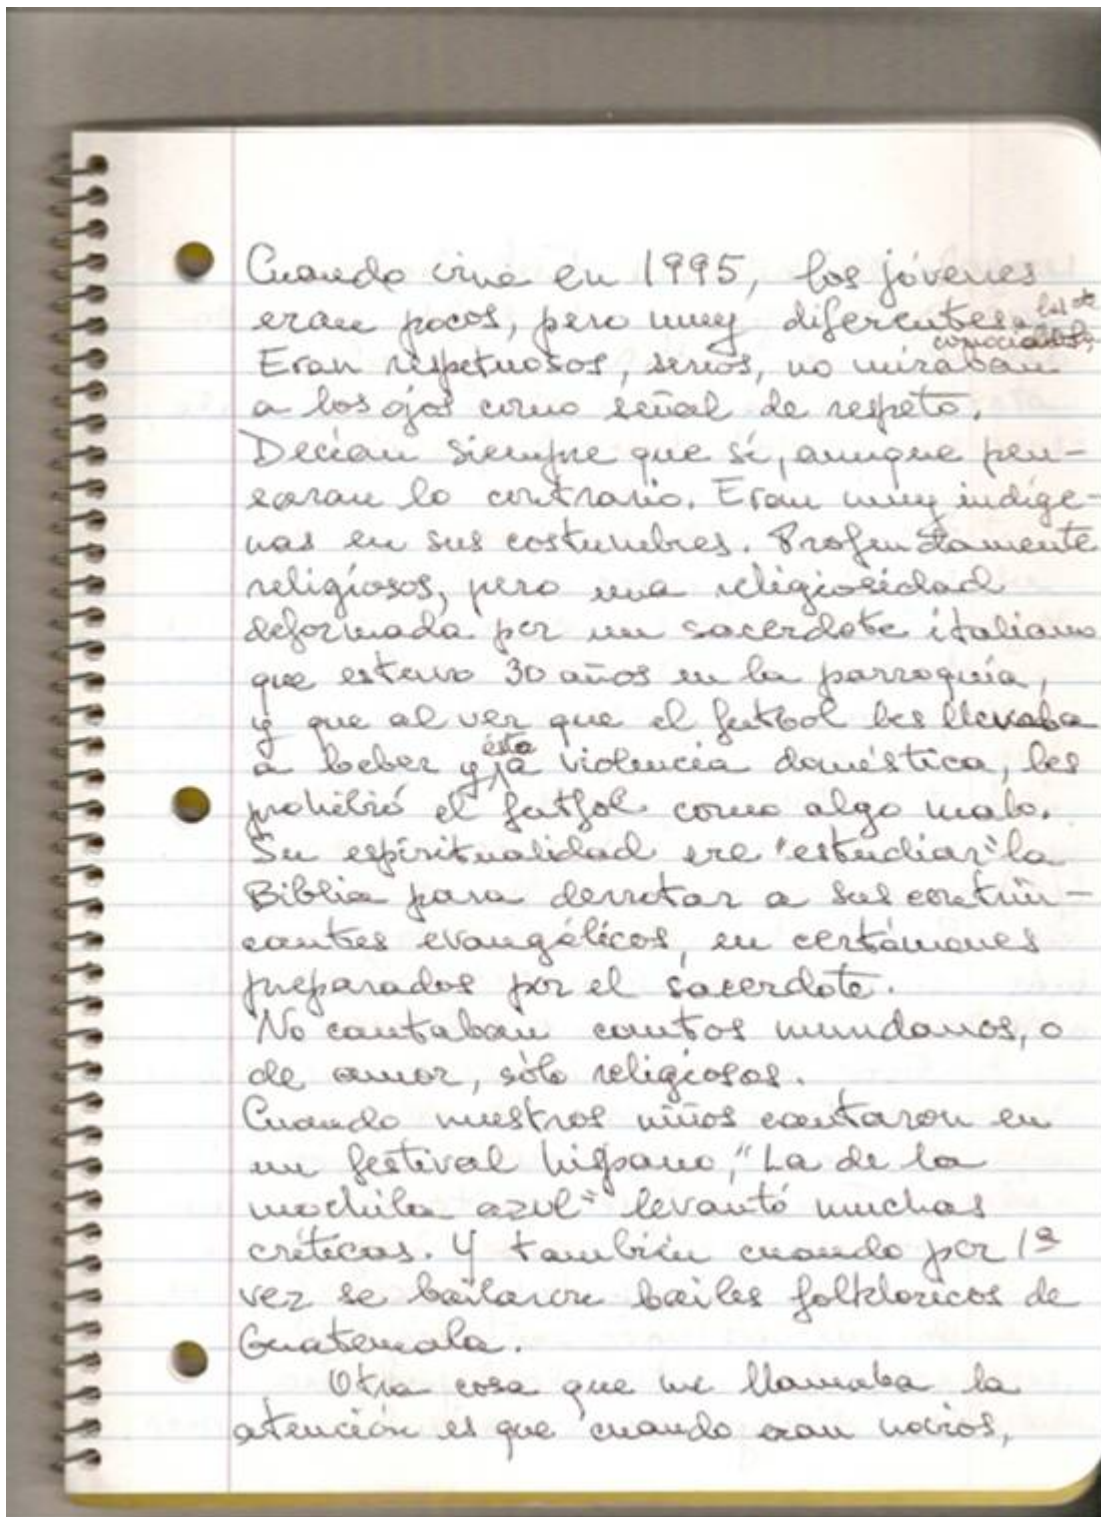 Cuando vine en 1995, los jóvenes
eran pocos, pero muy diferentes a los de
conocidos,
Eran respetuosos, serios, no miraban
a los ojos como señal de respeto.
Decían siempre que sí, aunque pen-
saran lo contrario. Eran muy indíge-
nas en sus costumbres. Profundamente
religiosos, pero una religiosidad
deformada por un sacerdote italiano
que estuvo 30 años en la parroquia,
y que al ver que el futbol les llevaba
a beber y ésta a violencia doméstica, les
prohibió el futbol como algo malo.
Su espiritualidad era "estudiar" la
Biblia para derrotar a sus contrin-
cantes evangélicos, en certámenes
preparados por el sacerdote.
No cantaban cantos mundanos, o
de amor, sólo religiosos.
Cuando nuestros niños cantaron en
un festival hispano, "La de la
mochila azul" levantó muchas
críticas. Y también cuando por 1ª
vez se bailaron bailes folkloricos de
Guatemala.
Otra cosa que me llamaba la
atención es que cuando eran novios,